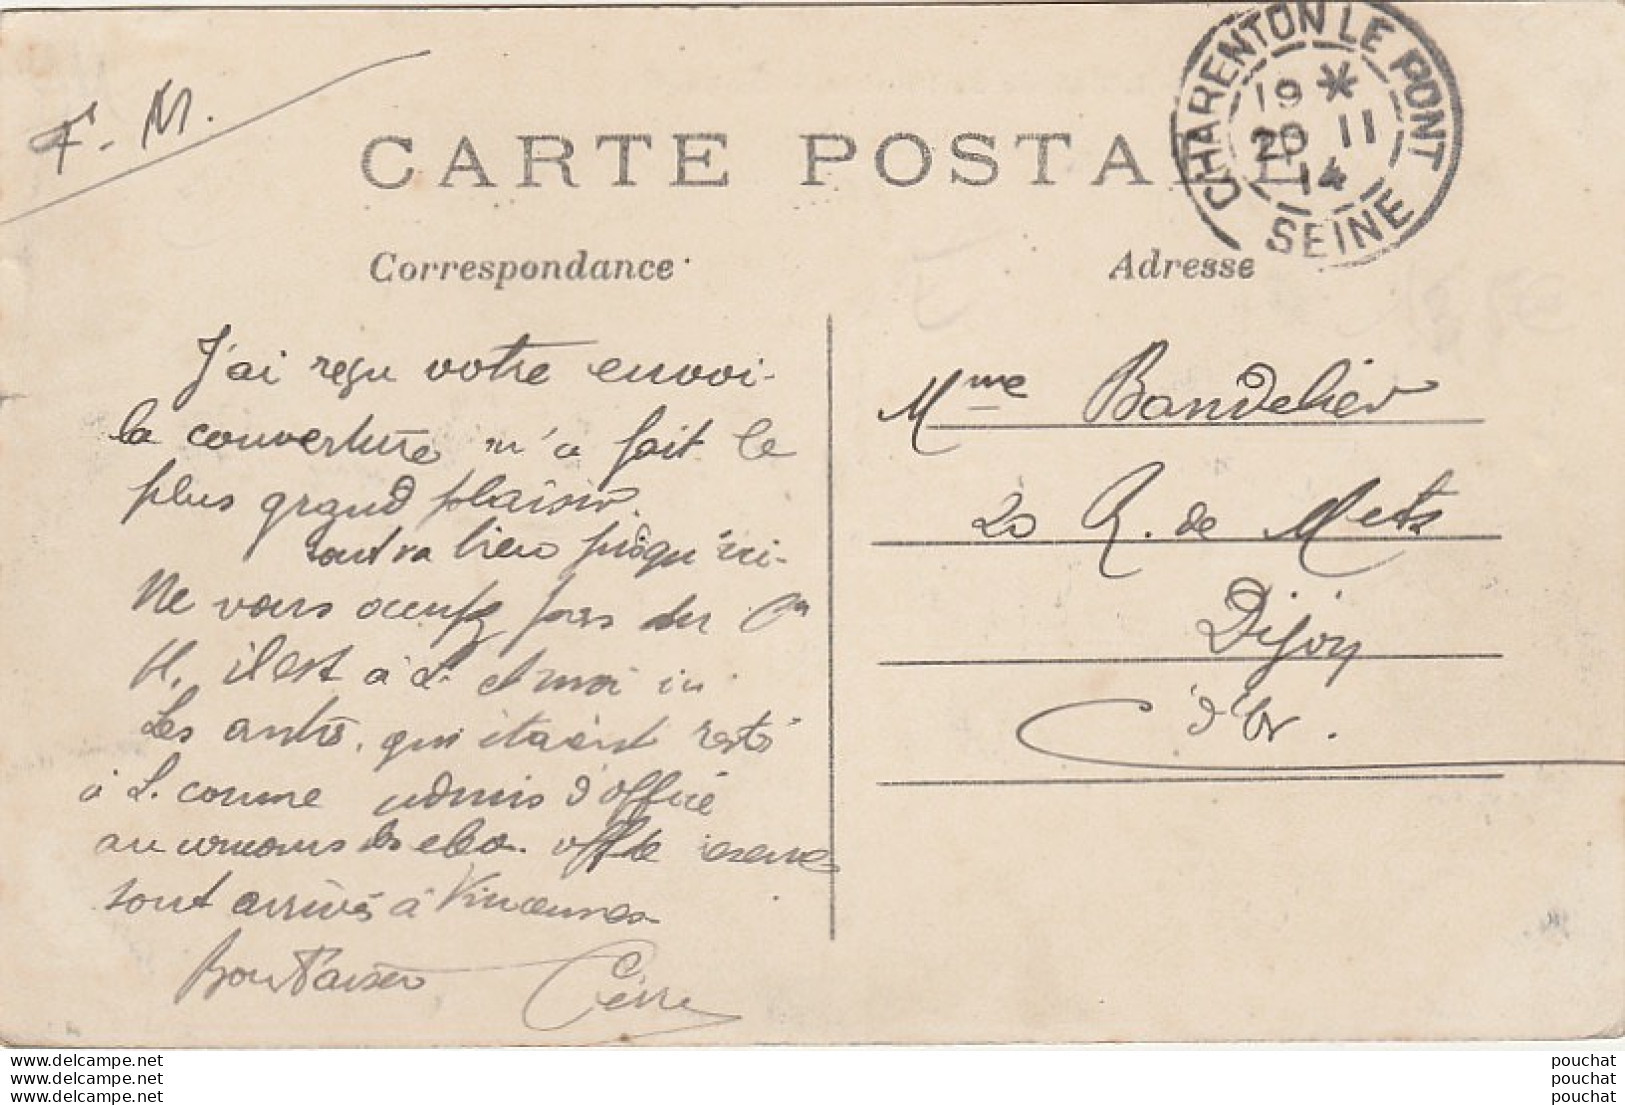 F. M.
CARTE POSTALE
CHARENTON LE PONT
19 *
20 11
14
SEINE
Correspondance
Adresse
J'ai reçu votre envoi.
la couverture m'a fait le
plus grand plaisir.
tout va bien jusqu'ici.
Ne vous occupez pas du
H. il est à L. et moi ici
Les autres, qui étaient restés
à L. comme admis d'office
au concours des
sont arrivés à Vincennes
Bon Baiser
Mme Bandelier
20 R. de Metz
Dijon
C d'Or.
www.delcampe.net
www.delcampe.net
www.delcampe.net
pouchat
pouchat
pouchat